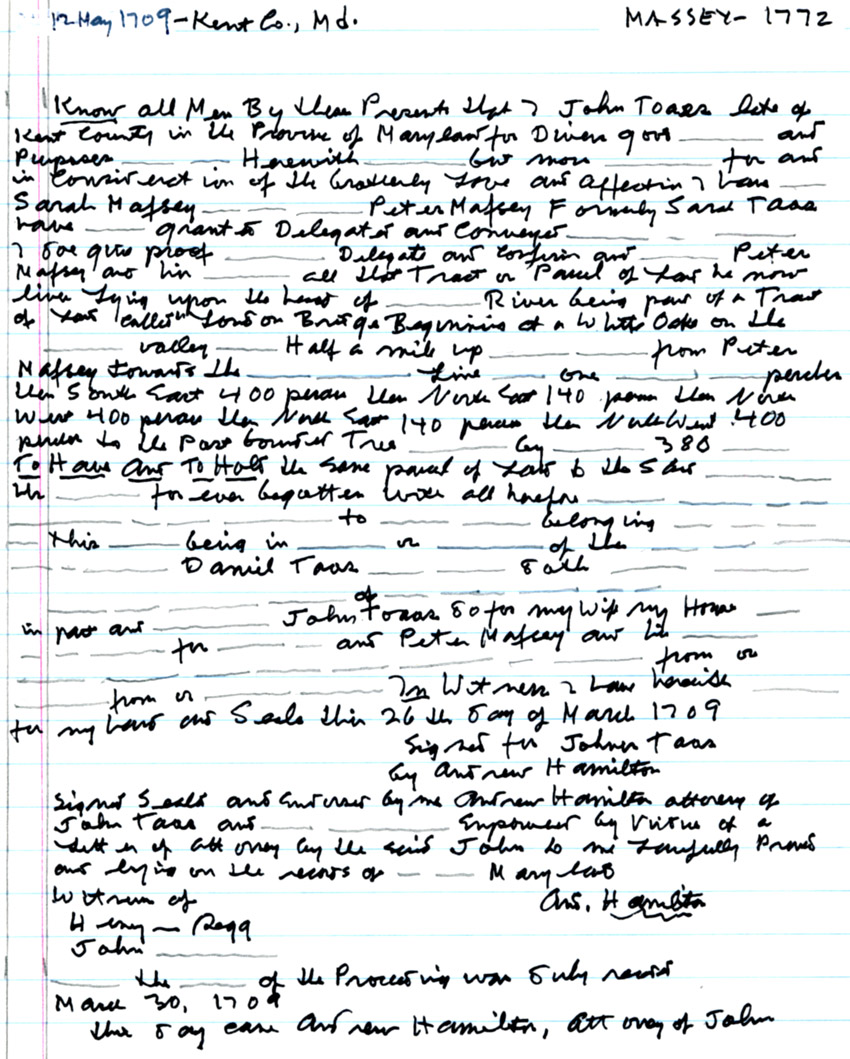 12 May 1709 - Kent Co., Md. MASSEY - 1772
Know all Men By these Presents that I John Toaes late of
Kent County in the Province of Maryland for Divers good ___ and
Purposes ___ ___ Herewith ___ but more ___ for and
in consideration of the brotherly Love and Affection I have ___
Sarah Mafsey ___ ___ Peter Mafsey Formerly Sarah Taas
have ___ granted Delegated and Conveyed ___ ___ ___
I doe give proof ___ Delegate and confirm and ___ Peter
Mafsey and his ___ all that Tract or Parcel of Land he now
lives lying upon the head of ___ River being part of a Tract
of Land called "London Bridge Beginning at a White Oake on the
___ valley ___ Half a mile up ___ ___ from Peter
Mafsey towards the ___ ___ Line ___ one ___ ___ perches
then South East 400 perches then North East 140 perches then North
West 400 perches then North East 140 perches then North West 400
perches to the Past bounded Tree ___ ___ by ___ 380
To Have And To Hold the same parcel of Land to the Said
the ___ for ever begotten with all
___ to ___ belonging
this ___ being in ___ or ___ of the
Daniel Taas ___ ___
of
in part and ___ John Toaas do for my Wife my
for ___ and Peter Mafsey and his ___
from or
from or ___ In Witness I have
for my hand and Seale this 26th day of March 1709
Signed for John Taas
by Andrew Hamilton
Signed Seald and Endorsed by me Andrew Hamilton attorney of
John Taas and ___ ___ Empowered by Virtue of a
Letter of Attorney by the said John to me Lawfully Proved
and lying on the records of ___ Maryland
Witness of And. Hamilton
Henry ___
John ___
___ the ___ of the Proceeding was duly record
March 30, 1709
this day came Andrew Hamilton, Attorney of John